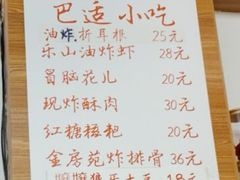 巴适小吃
油炸折耳根 25元
乐山油炸虾 28元
冒脑花儿 20元
现炸酥肉 30元
红糖糍粑 20元
金房苑炸排骨 36元
狼牙土豆 18元